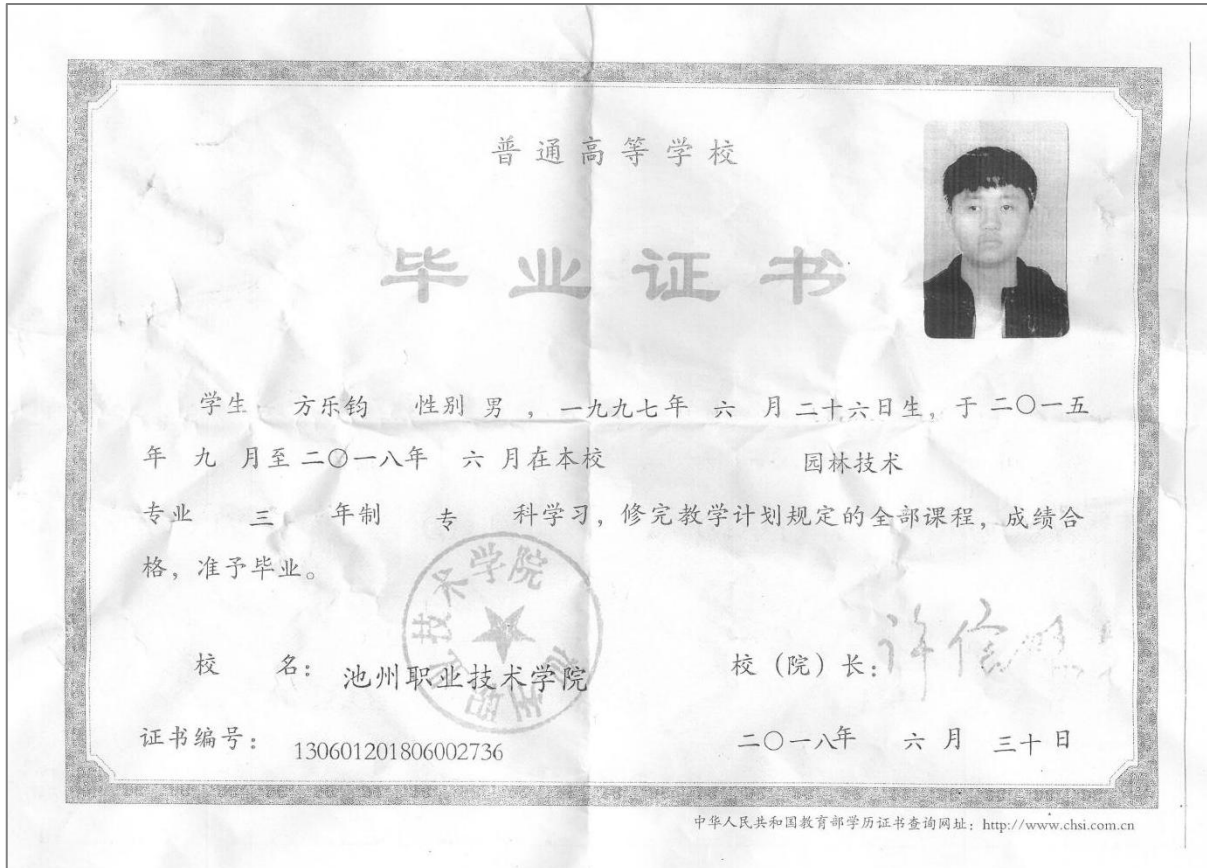 普通高等学校
毕业证书
学生 方乐钧 性别 男 ，一九九七年 六 月 二十六日生，于 二〇一五
年 九 月至 二〇一八年 六 月在本校 园林技术
专业 三 年制 专 科学习，修完教学计划规定的全部课程，成绩合
格，准予毕业。
池州职业技术学院
校 名：池州职业技术学院 校（院）长：许信
证书编号：130601201806002736 二〇一八年 六 月 三十 日
中华人民共和国教育部学历证书查询网址：http://www.chsi.com.cn